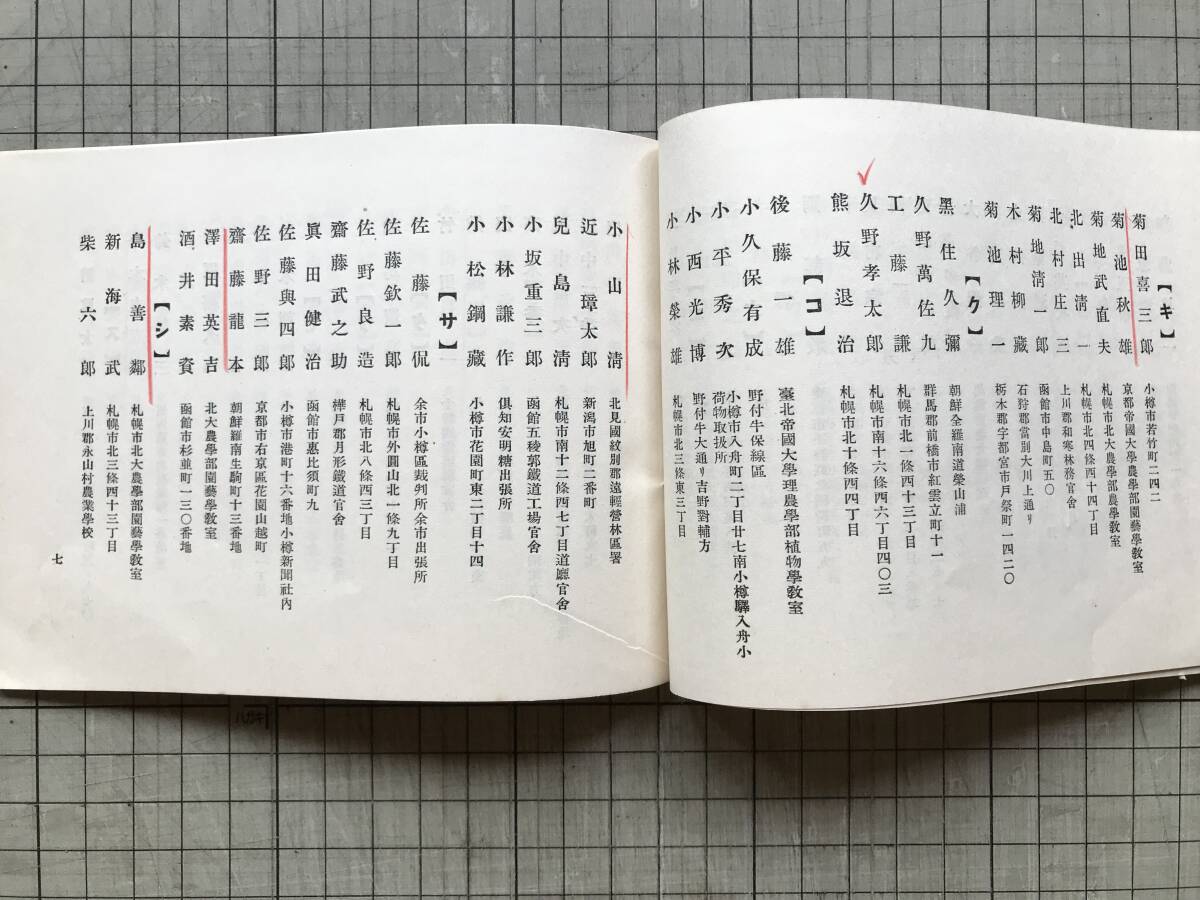 【キ】
菊田喜三郎 小樽市若竹町二四二
菊池秋雄 京都帝國大學農學部園藝學教室
菊地武直夫 札幌市北大農學部農藝學教室
北出清一 札幌市北四條西十四丁目
北村庄三 上川郡和寒林務官舍
菊地清一郎 函館市中島町五〇
木村柳藏 石狩郡當別大川上通リ
菊池理一 栃木郡宇都宮市戸祭町一四二〇
【ク】
黑住久彌 朝鮮全羅南道榮山浦
久野萬佐九 群馬郡前橋市紅雲立町十一
工藤謙 札幌市北一條西十三丁目
久野孝太郎 札幌市南十六條西六丁目四〇三
熊坂退治 札幌市北十條西四丁目
【コ】
後藤一雄 臺北帝國大學理農學部植物學教室
小久保有成 野付牛保線區
小平秀次 小樽市入舟町二丁目廿七南小樽驛入舟小荷物取扱所
小西光博 野付牛大通リ吉野對輔方
小林榮雄 札幌市北三條東三丁目
小山淸 北見國紋別郡遠輕營林區署
近中璋太郎 新潟市旭町二番町
兒島淸 札幌市南十二條西七丁目道廳官舍
小坂重三郎 函館五稜郭鐵道工場官舍
小林謙作 俱知安明糖出張所
小松鋼藏 小樽市花園町東二丁目十四
【サ】
佐藤侃 余市小樽區裁判所余市出張所
佐藤欽一郎 札幌市外圓山北一條九丁目
佐野良造 札幌市北八條西三丁目
齋藤武之助 樺戸郡月形鐵道官舍
眞田健治 函館市惠比須町九
佐藤與四郎 小樽市港町十六番地小樽新聞社內
佐野三郎 京都市右京區花園山越町
齋藤龍本 朝鮮羅南生駒町十三番地
澤田英吉 北大農學部園藝學教室
酒井素資 函館市杉並町一三〇番地
【シ】
島善鄰 札幌市北大農學部園藝學教室
新海武 札幌市北三條西十三丁目
柴貞六郎 上川郡永山村農業學校
七